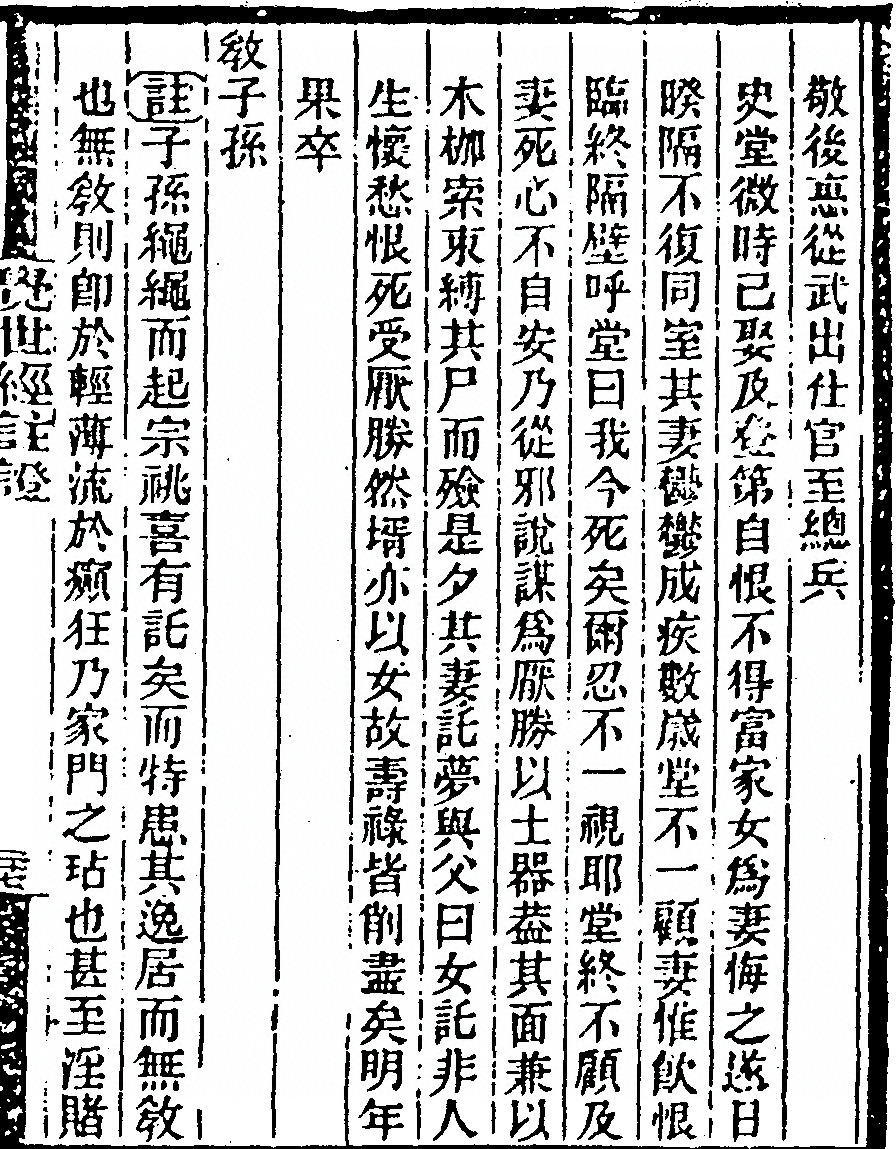 敬後悪從武出仕官至總兵
史堂微時已娶及登第自恨不得富家女爲妻悔之遂日
暌隔不復同室其妻鬱鬱成疾數歲堂不一顧妻惟飮恨
臨終隔壁呼堂曰我今死矣爾忍不一視耶堂終不顧及
妻死心不自安乃從邪說謀爲厭勝以土器葢其面兼以
木枷索束縛其尸而殮是夕其妻託夢與父曰女託非人
生懷愁恨死受厭勝然壻亦以女故壽祿皆削盡矣明年
果卒
敎子孫
註子孫繩繩而起宗祧喜有託矣而特患其逸居而無敎
也無敎則卽於輕薄流於癲狂乃家門之玷也甚至淫賭
覺世經註證